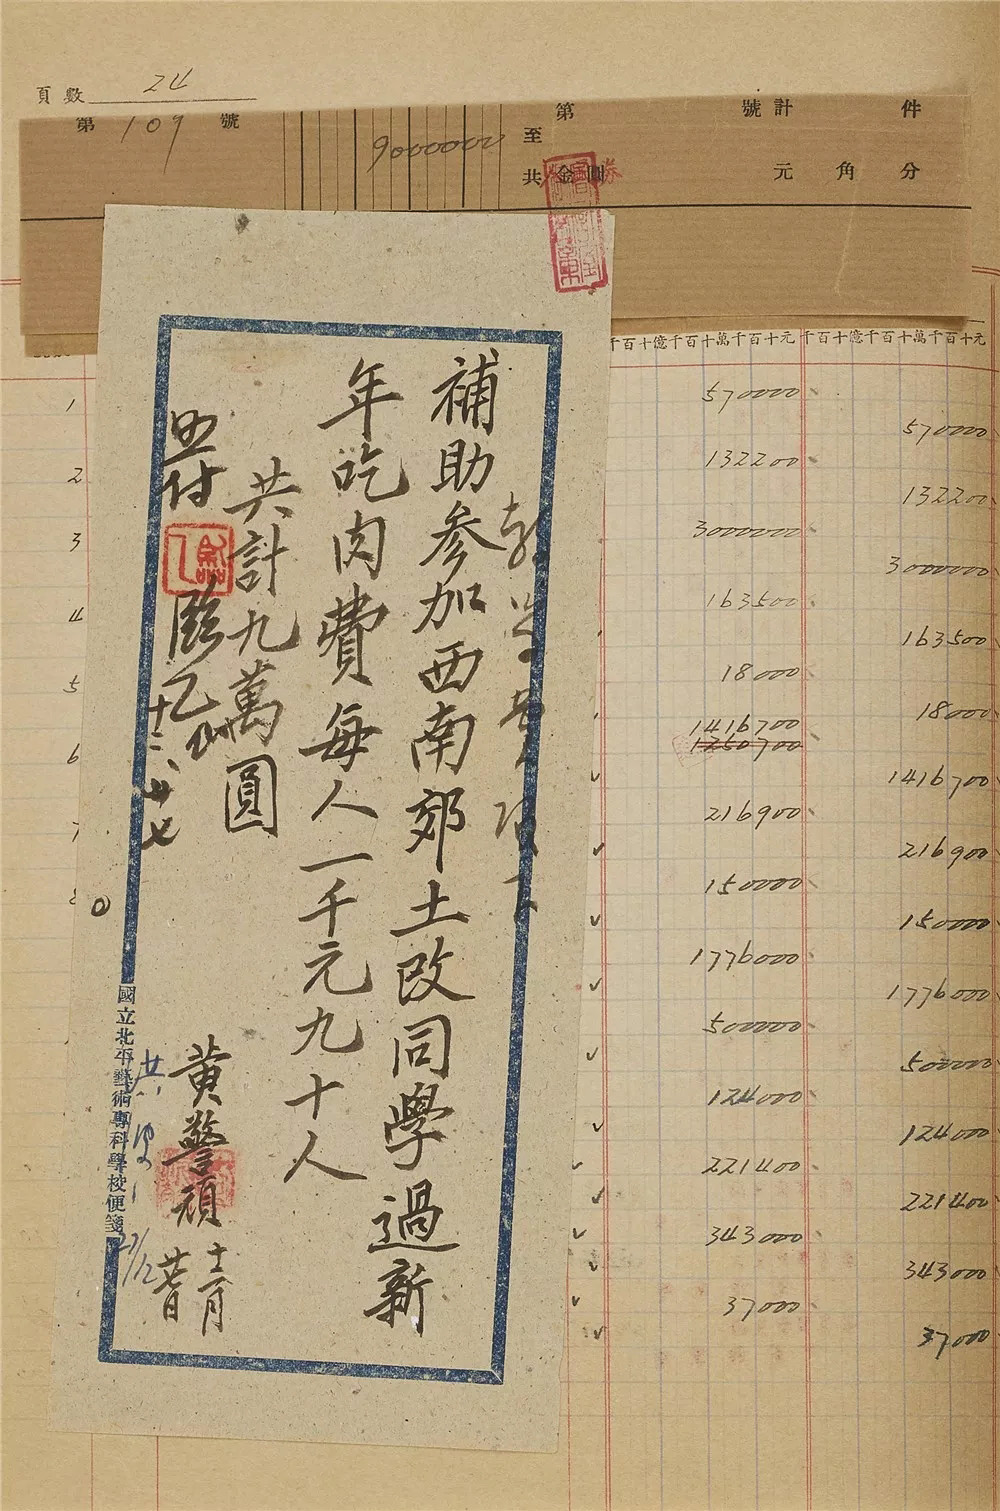 頁數 24
第 109 號
9000000
第 號計 件
至
共金圓券 元 角 分
千百十億千百十萬千百十元
千百十億千百十萬千百十元
補助参加西南郊土改同學過新
年吃肉費每人一千元九十人
共計九萬圓
黄警頑
十二月
廿七日
國立北平藝術專科學校便箋
27/12
1
2
3
4
5
6
7
570000
570000
132200
132200
3000000
3000000
163500
163500
18000
18000
1416700
1250700
1416700
216900
216900
150000
150000
1776000
1776000
500000
500000
124000
124000
221400
221400
343000
343000
37000
37000